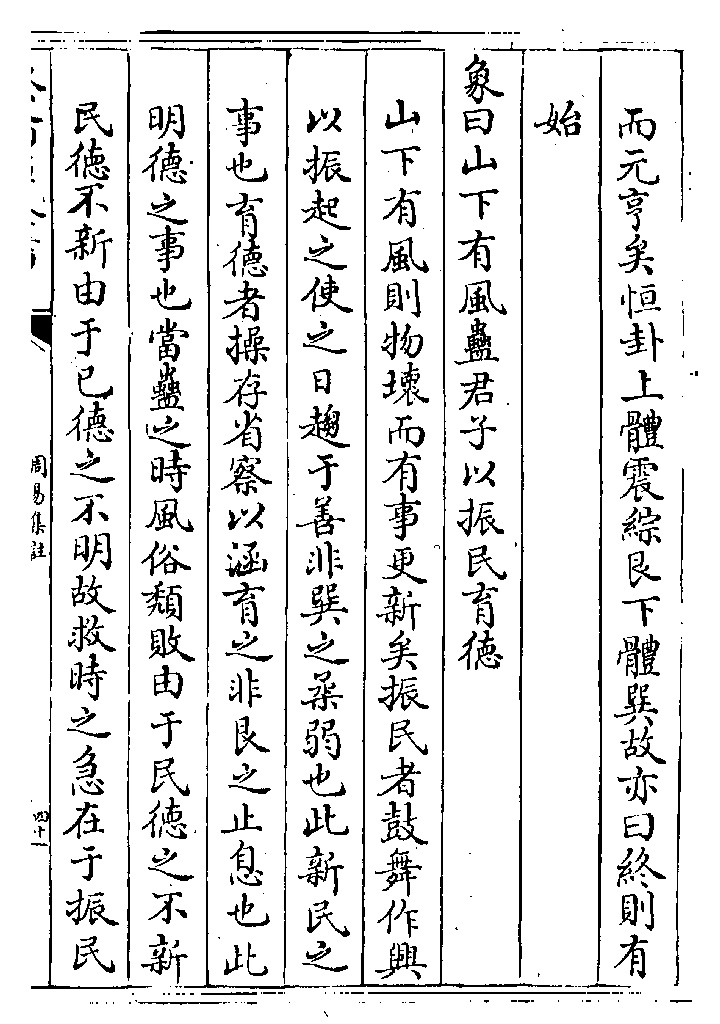 而元亨矣恒卦上體震綜艮下體巽故亦曰終則有
始
象曰山下有風蠱君子以振民育德
山下有風則物壞而有事更新矣振民者鼓舞作興
以振起之使之日趨于善非巽之柔弱也此新民之
事也育德者操存省察以涵育之非艮之止息也此
明德之事也當蠱之時風俗頹敗由于民德之不新
民德不新由于己德之不明故救時之急在于振民
周易集註
四十一